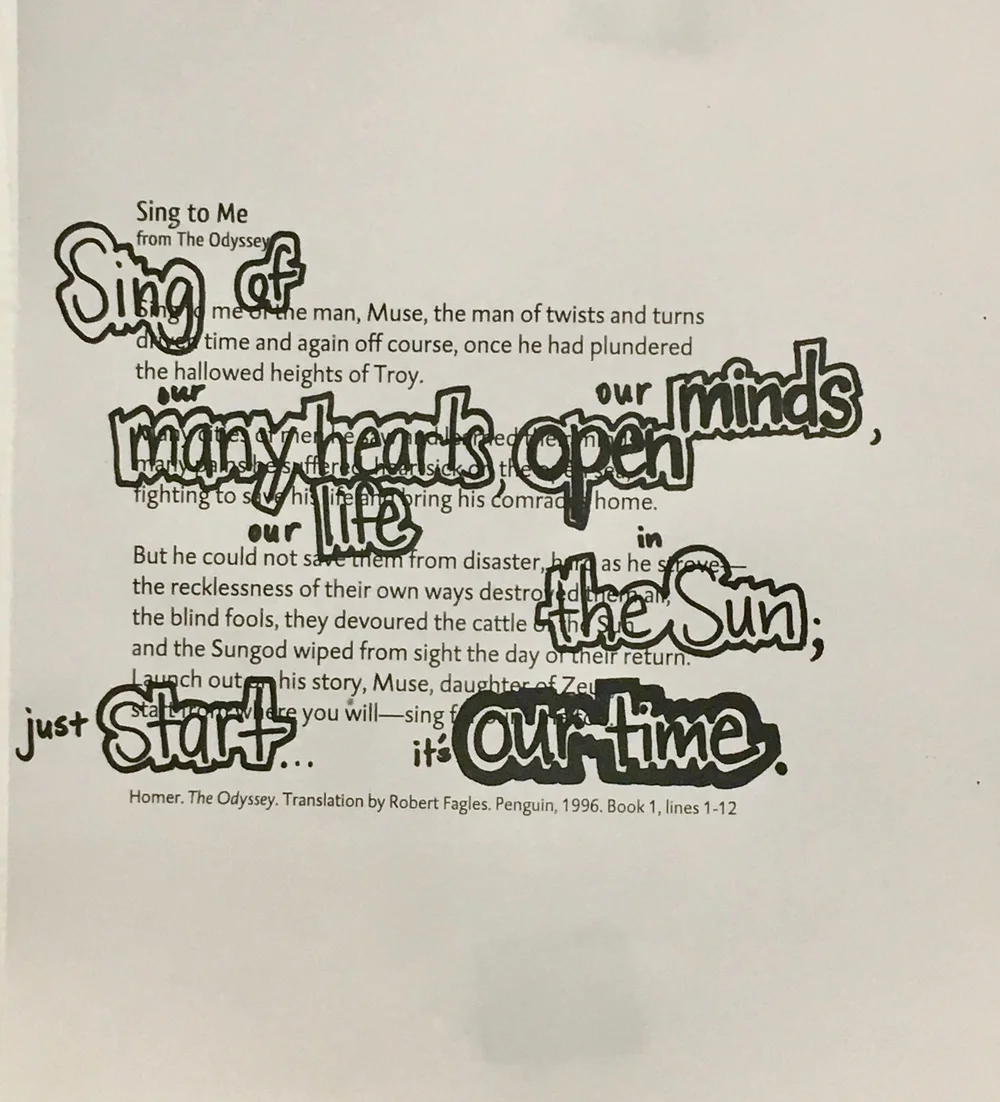 Sing to Me
from The Odyssey
Sing of
me of the man, Muse, the man of twists and turns
driven time and again off course, once he had plundered
the hallowed heights of Troy.
our our minds,
many hearts, open
fighting to save his life and bring his comrades home.
our life in
But he could not save them from disaster, hard as he strove—
the recklessness of their own ways destroyed them all,
the Sun;
the blind fools, they devoured the cattle of the Sun
and the Sungod wiped from sight the day of their return.
Launch out on his story, Muse, daughter of Zeus
start from where you will—sing
just Start... it's our time.
Homer. The Odyssey. Translation by Robert Fagles. Penguin, 1996. Book 1, lines 1-12